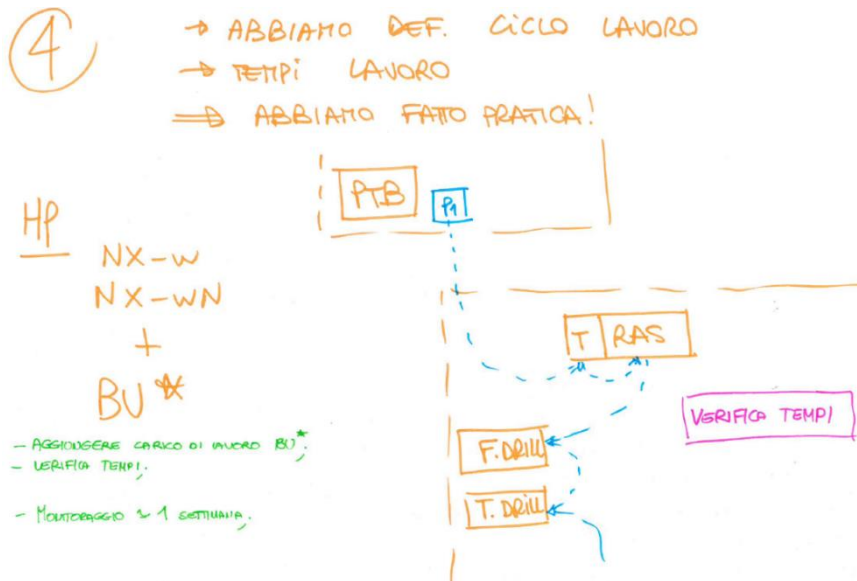 4
→ ABBIAMO DEF. CICLO LAVORO
→ TEMPI LAVORO
⇒ ABBIAMO FATTO PRATICA!
PTB
P1
HP
NX-W
NX-WN
+
BU*
T RAS
VERIFICA TEMPI
F. DRILL
T. DRILL
- AGGIUNGERE CARICO DI LAVORO BU*;
- VERIFICA TEMPI;
- MONITORAGGIO 1 SETTIMANA;